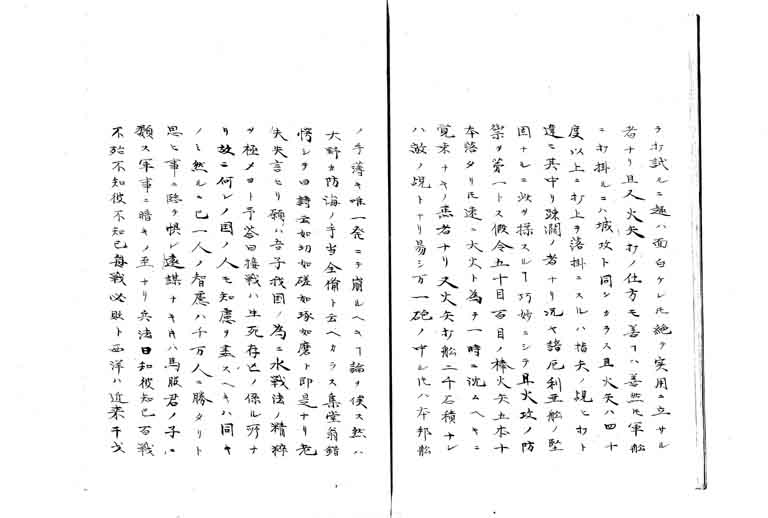 ヲ打試ルニ趣ハ面白ケレ𪜈絶テ実用ニ立サル
者ナリ且又火矢打ノ仕方モ善ハ善然𪜈軍船
ニ打掛ルニハ城攻ト同シカラス且火矢ハ四十
度以上ニ打上ヲ落掛ニスルハ指矢ノ規ヒ打ト
違ニ其中リ疎濶ノ者ナリ況ヤ諸厄利亜船ノ堅
固ナルニ此ヲ操スルヿ巧妙ニシテ且火攻ノ防
禦ヲ第一トス假令五十目百目ノ棒火矢五本十
本落タリ𪜈速ニ大火ト為テ一時ニ沈ムヘキニ
覚束ナキノ悪者ナリ又火矢打船二千石積ナレ
ハ敵ノ規トナリ易シ万一砲ノ中レ𪜈ハ本邦船
ノ手薄キ唯一発ニテ崩ルヘキヿ論ヲ俟ス然ハ
大野カ防海ノ手当全備ト云ヘカラス集堂翁錯
愕シテ曰詩云如切如磋如琢如磨ト即是ナリ老
夫失言セリ願ハ吾子我国ノ為ニ水戦法ノ精粋
ヲ極メヨト予答曰接戦ハ生死存亡ノ係ル所ナ
リ故ニ何レノ国ノ人モ知慮ヲ盡スヘキハ同キ
ノミ然ルニ己一人ノ智慮ハ千万人ニ勝タリト
思ヒ事ニ臨テ惧レ遠謀ナキキハ馬服君ノ子ニ
類ス軍事ニ暗キノ至ナリ兵法曰知彼知己百戦
不殆不知彼不知己毎戦必敗ト西洋ハ近来干戈